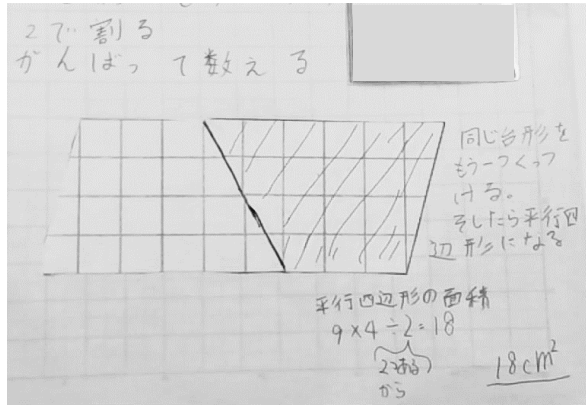 2で割る
がんばって数える
同じ台形を
もう一つくっつ
ける。
そしたら平行四
辺形になる
平行四辺形の面積
9×4÷2=18
2つある
から
18cm²